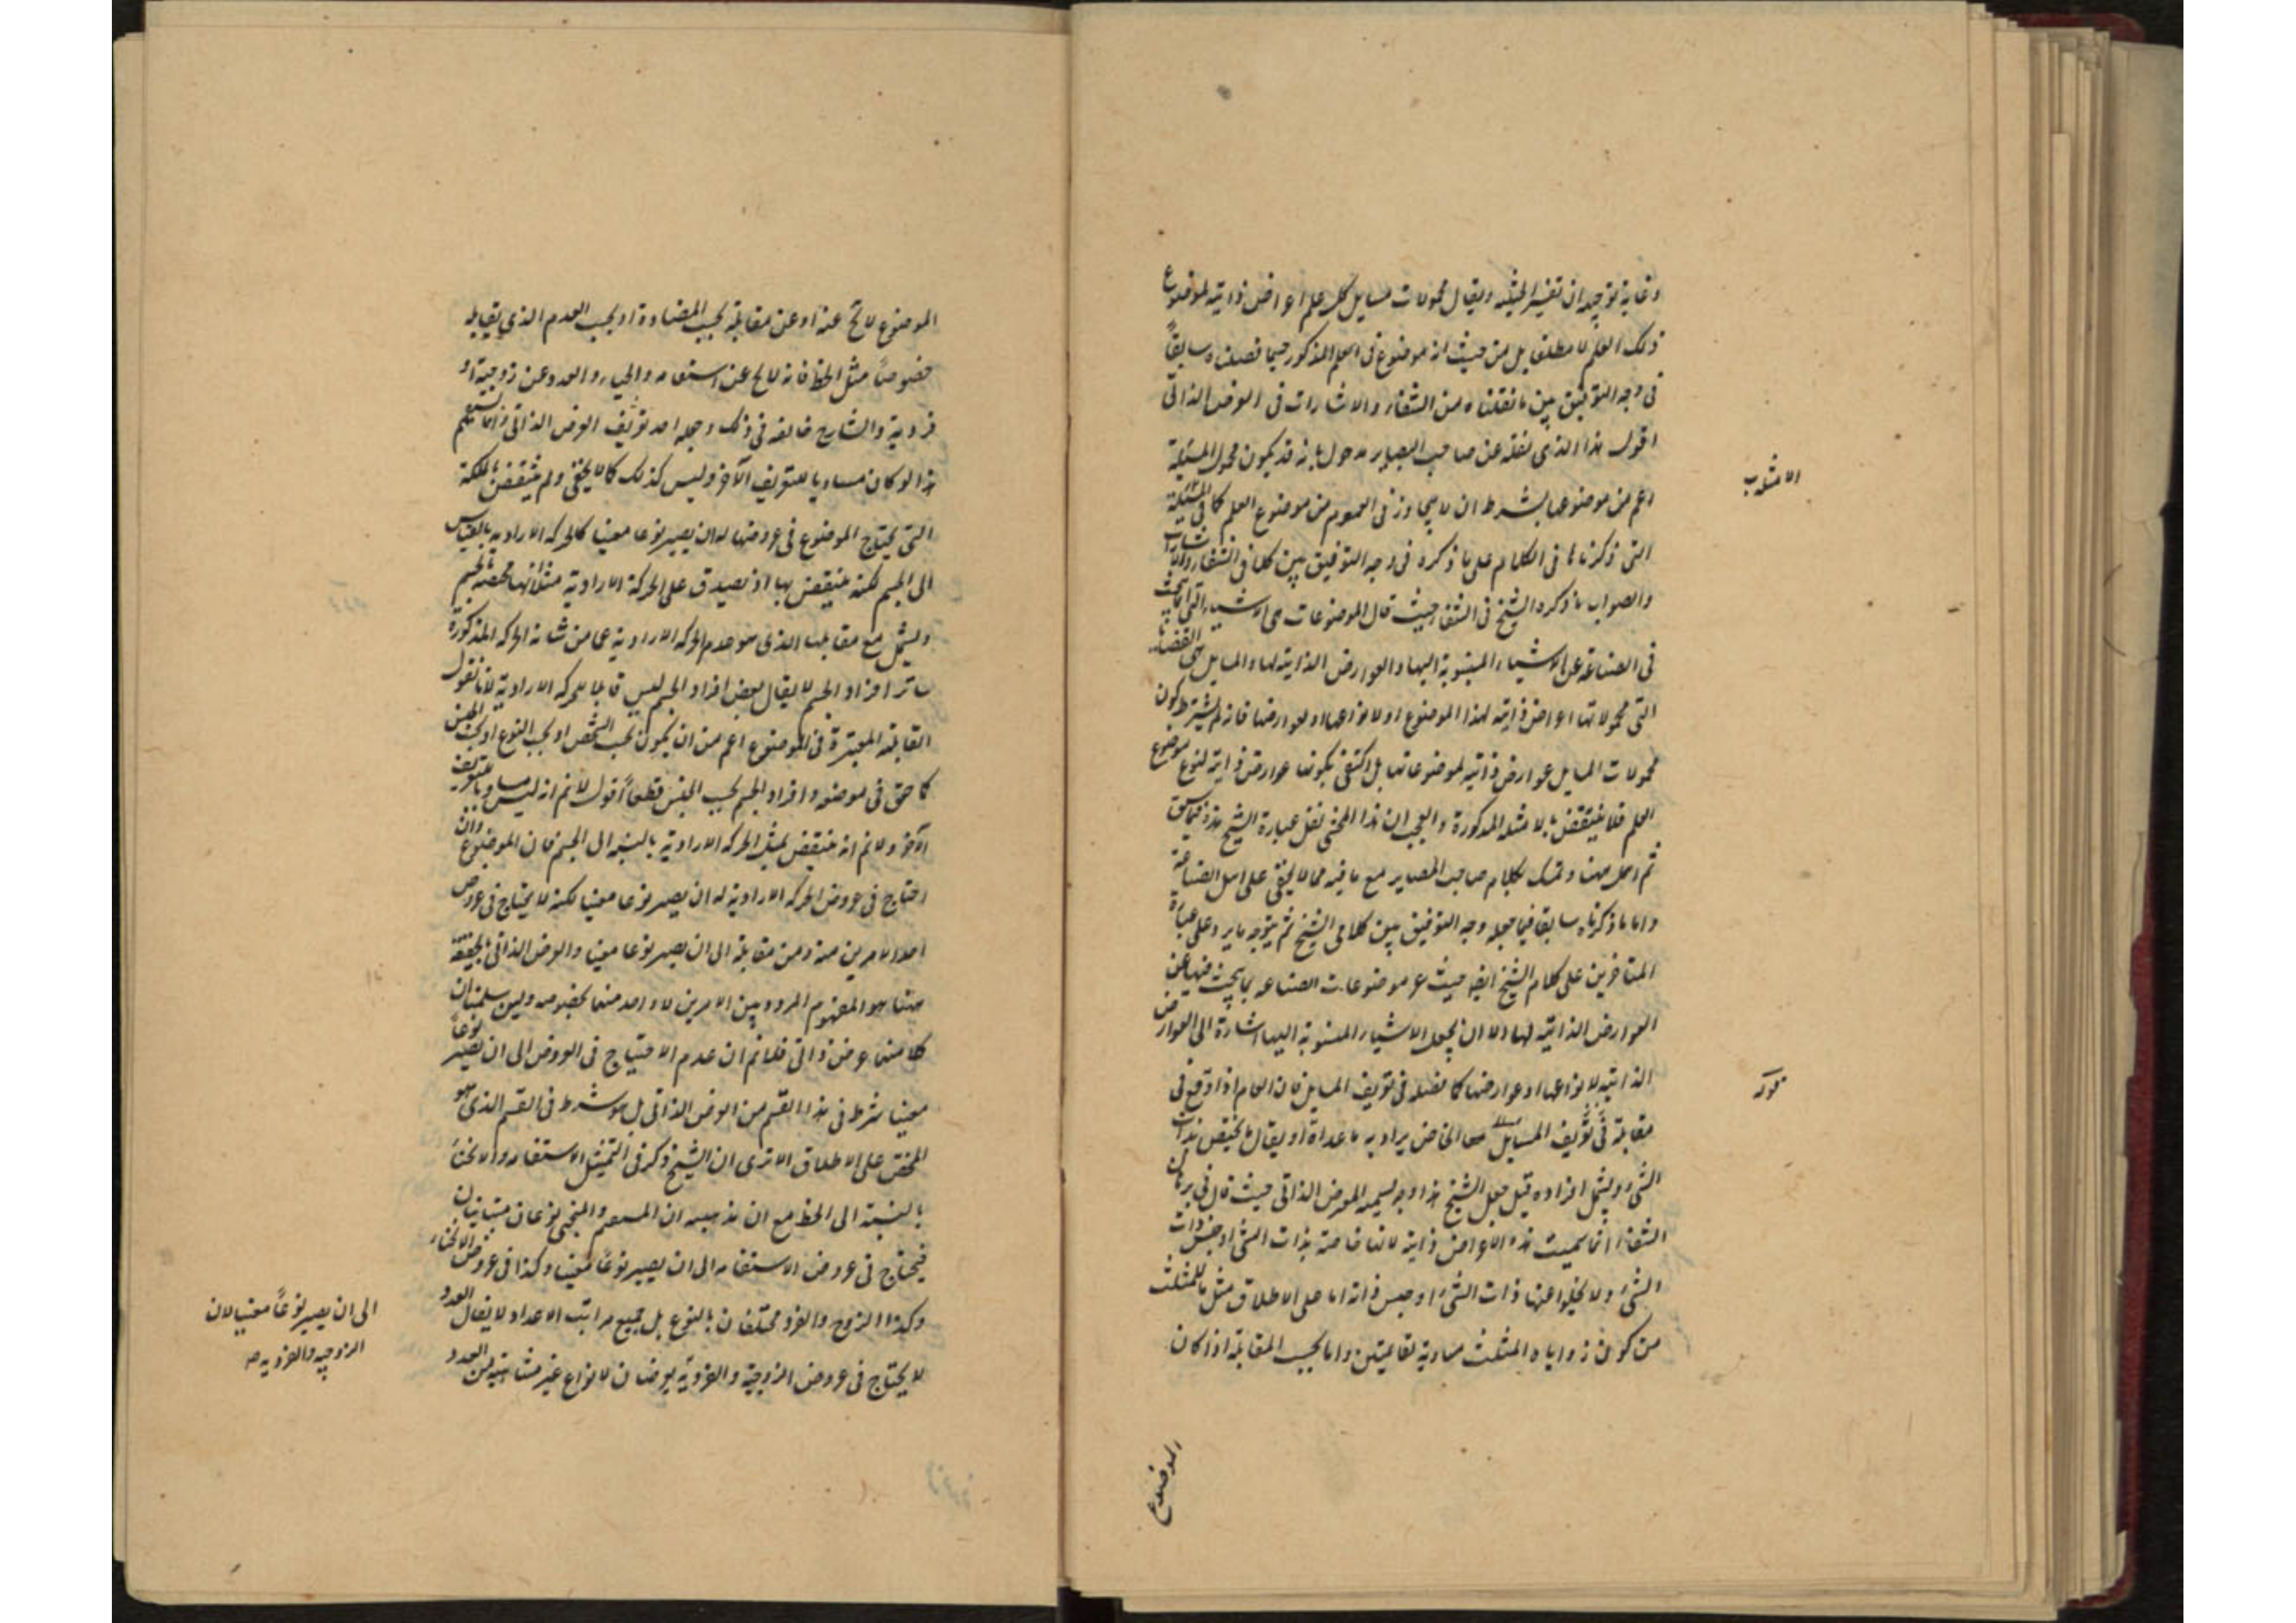 وغاية توجيهه ان تفسر الحيثية ويقال محمولات مسايل كل علم اعراض ذاتية لموضوع
ذلك العلم لا مطلقا بل من حيث انه موضوع فى العلم المذكور حيما فصلناه سابقاً
فى وجه التوفيق بين ما نقلناه من الشفاء والاشارات فى العرض الذاتى
اقول هذا الذى نقله عن صاحب البصاير مدخول بانه قد يكون محمول المسئلة
اعم من موضوعها بشرط ان لا يتجاوز فى العموم من موضوع العلم كما فى المسئلة
التى ذكرناها فى الكلام على ما ذكره فى وجه التوفيق بين كلامى الشفاء والاشارات
والصواب ما ذكره الشيخ فى الشفاء حيث قال الموضوعات هى الاشياء التى انما يبحث
فى الصناعة عن الاشياء المنسوبة اليها والعوارض الذاتية لها والمسايل هى القضايا
التى محمولاتها اعراض ذاتية لهذا الموضوع او لانواعها او لعوارضها فانه لم يشترط كون
محمولات المسايل عوارض ذاتية لموضوعاتها بل اكتفى بكونها عوارض ذاتية لنوع موضوع
العلم فلا ينتقض بالامثلة المذكورة والعجب ان هذا المحشى نقل عبارة الشيخ هذه فيما سبق
ثم اهمل ههنا وتمسك بكلام صاحب البصاير مع ما فيه مما لا يخفى على اهل الصناعة
واما ما ذكرناه سابقا فيما جعله وجه التوفيق بين كلامى الشيخ ثم يتوجه ما يرد على عبارة
المتاخرين على كلام الشيخ ايضا حيث عرف موضوعات الصناعه بما يبحث فيها عن
العوارض الذاتية لها والا ان يجعل الاشياء المنسوبة اليها اشارة الى العوارض
الذاتية لانواعها او عوارضها كما نضله فى تعريف المسايل فان العام اذا وقع فى
مقابلة فى تعريف المسايل الخاص يراد به ما عداه او يقال ما يختص بذات
الشئ ويشمل افراده قيل جعل الشيخ هذا وجه تسمية العرض الذاتى حيث قال فى برهان
الشفاء انما سميت هذه الاعراض ذاتية لانها خاصة بذات الشئ او جنس ذات
الشئ ولا يخلوا عنها ذات الشئ او جنس ذاته اما على الاطلاق مثل ما للمثلث
من كون زواياه المثلث مساوية لقائمتين واما بحسب المقابلة اذا كان
الامثلة
الموضوع
الموضوع لا يخ عنه او عن مقابله بحسب المضادة او بحسب العدم الذى يقابله
خصوصاً مثل الخط فانه لا يخ عن استقامه وانحناء والعدد عن زوجية او
فردية والشارح خالفه فى ذلك وجعله احد تعريف العرض الذاتى وانما يستقيم
هذا لو كان مساويا للتعريف الآخر وليس كذلك كما لا يخفى ولم ينتقض بالملكة
التى يحتاج الموضوع فى عروضها له ان يصير نوعا معينا كالحركه الارادية بالقياس
الى الجسم لكنه ينتقض بها اذ يصدق على الحركة الارادية مثلا انها مختصة بالجسم
ويشمل مع مقابلها الذى هو عدم الحركه الارادية عما من شانه الحركه المذكورة
سائر افراد الجسم لا يقال بعض افراد الجسم ليس قابلا للحركه الارادية لانا نقول
القابلية المعتبرة فى الموضوع اعم من ان يكون بحسب الشخص او بحسب النوع او بحسب الجنس
كما حقق فى موضعه وافراد الجسم بحسب الجنس قطعاً اقول لا نم انه ليس مساويا لتعريف
الآخر ولا نم انه ينتقض بمثل الحركه الارادية بالنسبه الى الجسم فان الموضوع وان
احتاج فى عروض الحركه الارادية له ان يصير نوعا معينا لكنه لا يحتاج فى عروض
احد الامرين منه ومن مقابله الى ان يصير نوعا معينا والعرض الذاتى بالحقيقة
ههنا هو المفهوم المردد بين الامرين لا واحد منهما بخصوصه ولئن سلمنا ان
كلا منهما عرض ذاتى فلا نم ان عدم الاحتياج فى العروض الى ان يصير نوعاً
معينا شرط فى هذا القسم من العرض الذاتى بل هو شرط فى القسم الذى هو
المختص على الاطلاق الا ترى ان الشيخ ذكر فى التمثيل الاستقامه والانحناء
بالنسبة الى الخط مع ان مذهبه ان المستقيم والمنحنى نوعان متباينان
فيحتاج فى عروض الاستقامه الى ان يصير نوعاً معينا وكذا فى عروض الانحناء
وكذا الزوج والفرد مختلفان بالنوع بل جميع مراتب الاعداد لا يقال العدد
لا يحتاج فى عروض الزوجية والفردية يعرضان لانواع غير متناهية من العدد
الى ان يصير نوعاً معينا لان
الزوجيه والفرديه صح